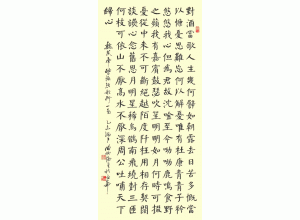 對酒當歌人生幾何譬如朝露去日苦多慨當
以慷憂思難忘何以解憂惟有杜康青青子衿
悠悠我心但為君故沈吟至今呦呦鹿鳴食野
之蘋我有嘉賓鼓瑟吹笙明明如月何時可掇
憂從中來不可斷絕越陌度阡枉用相存契闊
談讌心念舊恩月明星稀烏鵲南飛繞樹三匝
何枝可依山不厭高水不厭深周公吐哺天下
歸心